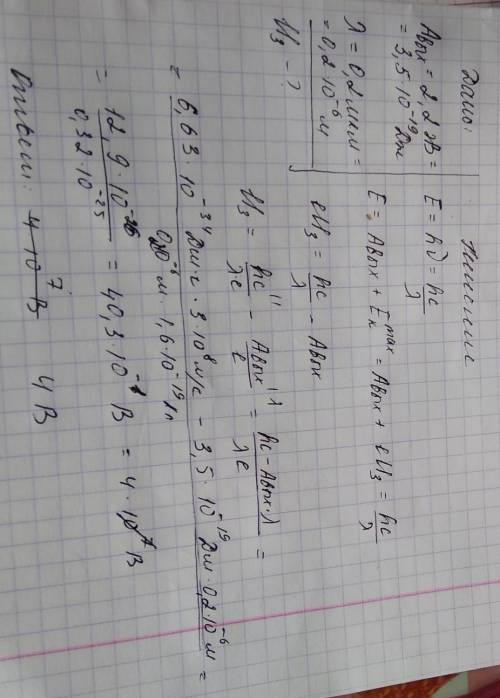 Дано:
Aвых = 2,2 эВ =
= 3,5·10⁻¹⁹ Дж
λ = 0,2 мкм =
= 0,2·10⁻⁶ м
U₃ - ?
Решение
E = hν = hc/λ
E = Aвых + Eₖᵐᵃˣ = Aвых + eU₃ = hc/λ
eU₃ = hc/λ - Aвых
U₃ = hc/λe - Aвых/e = (hc - Aвых·λ)/λe =
= (6,63·10⁻³⁴ Дж·с · 3·10⁸ м/с - 3,5·10⁻¹⁹ Дж·0,2·10⁻⁶ м)/(0,2·10⁻⁶ м · 1,6·10⁻¹⁹ Кл) =
= 12,9·10⁻²⁶/0,32·10⁻²⁵ = 40,3·10⁻¹ В = 4·10⁷ В
Ответ: 4·10⁷ В 4 В